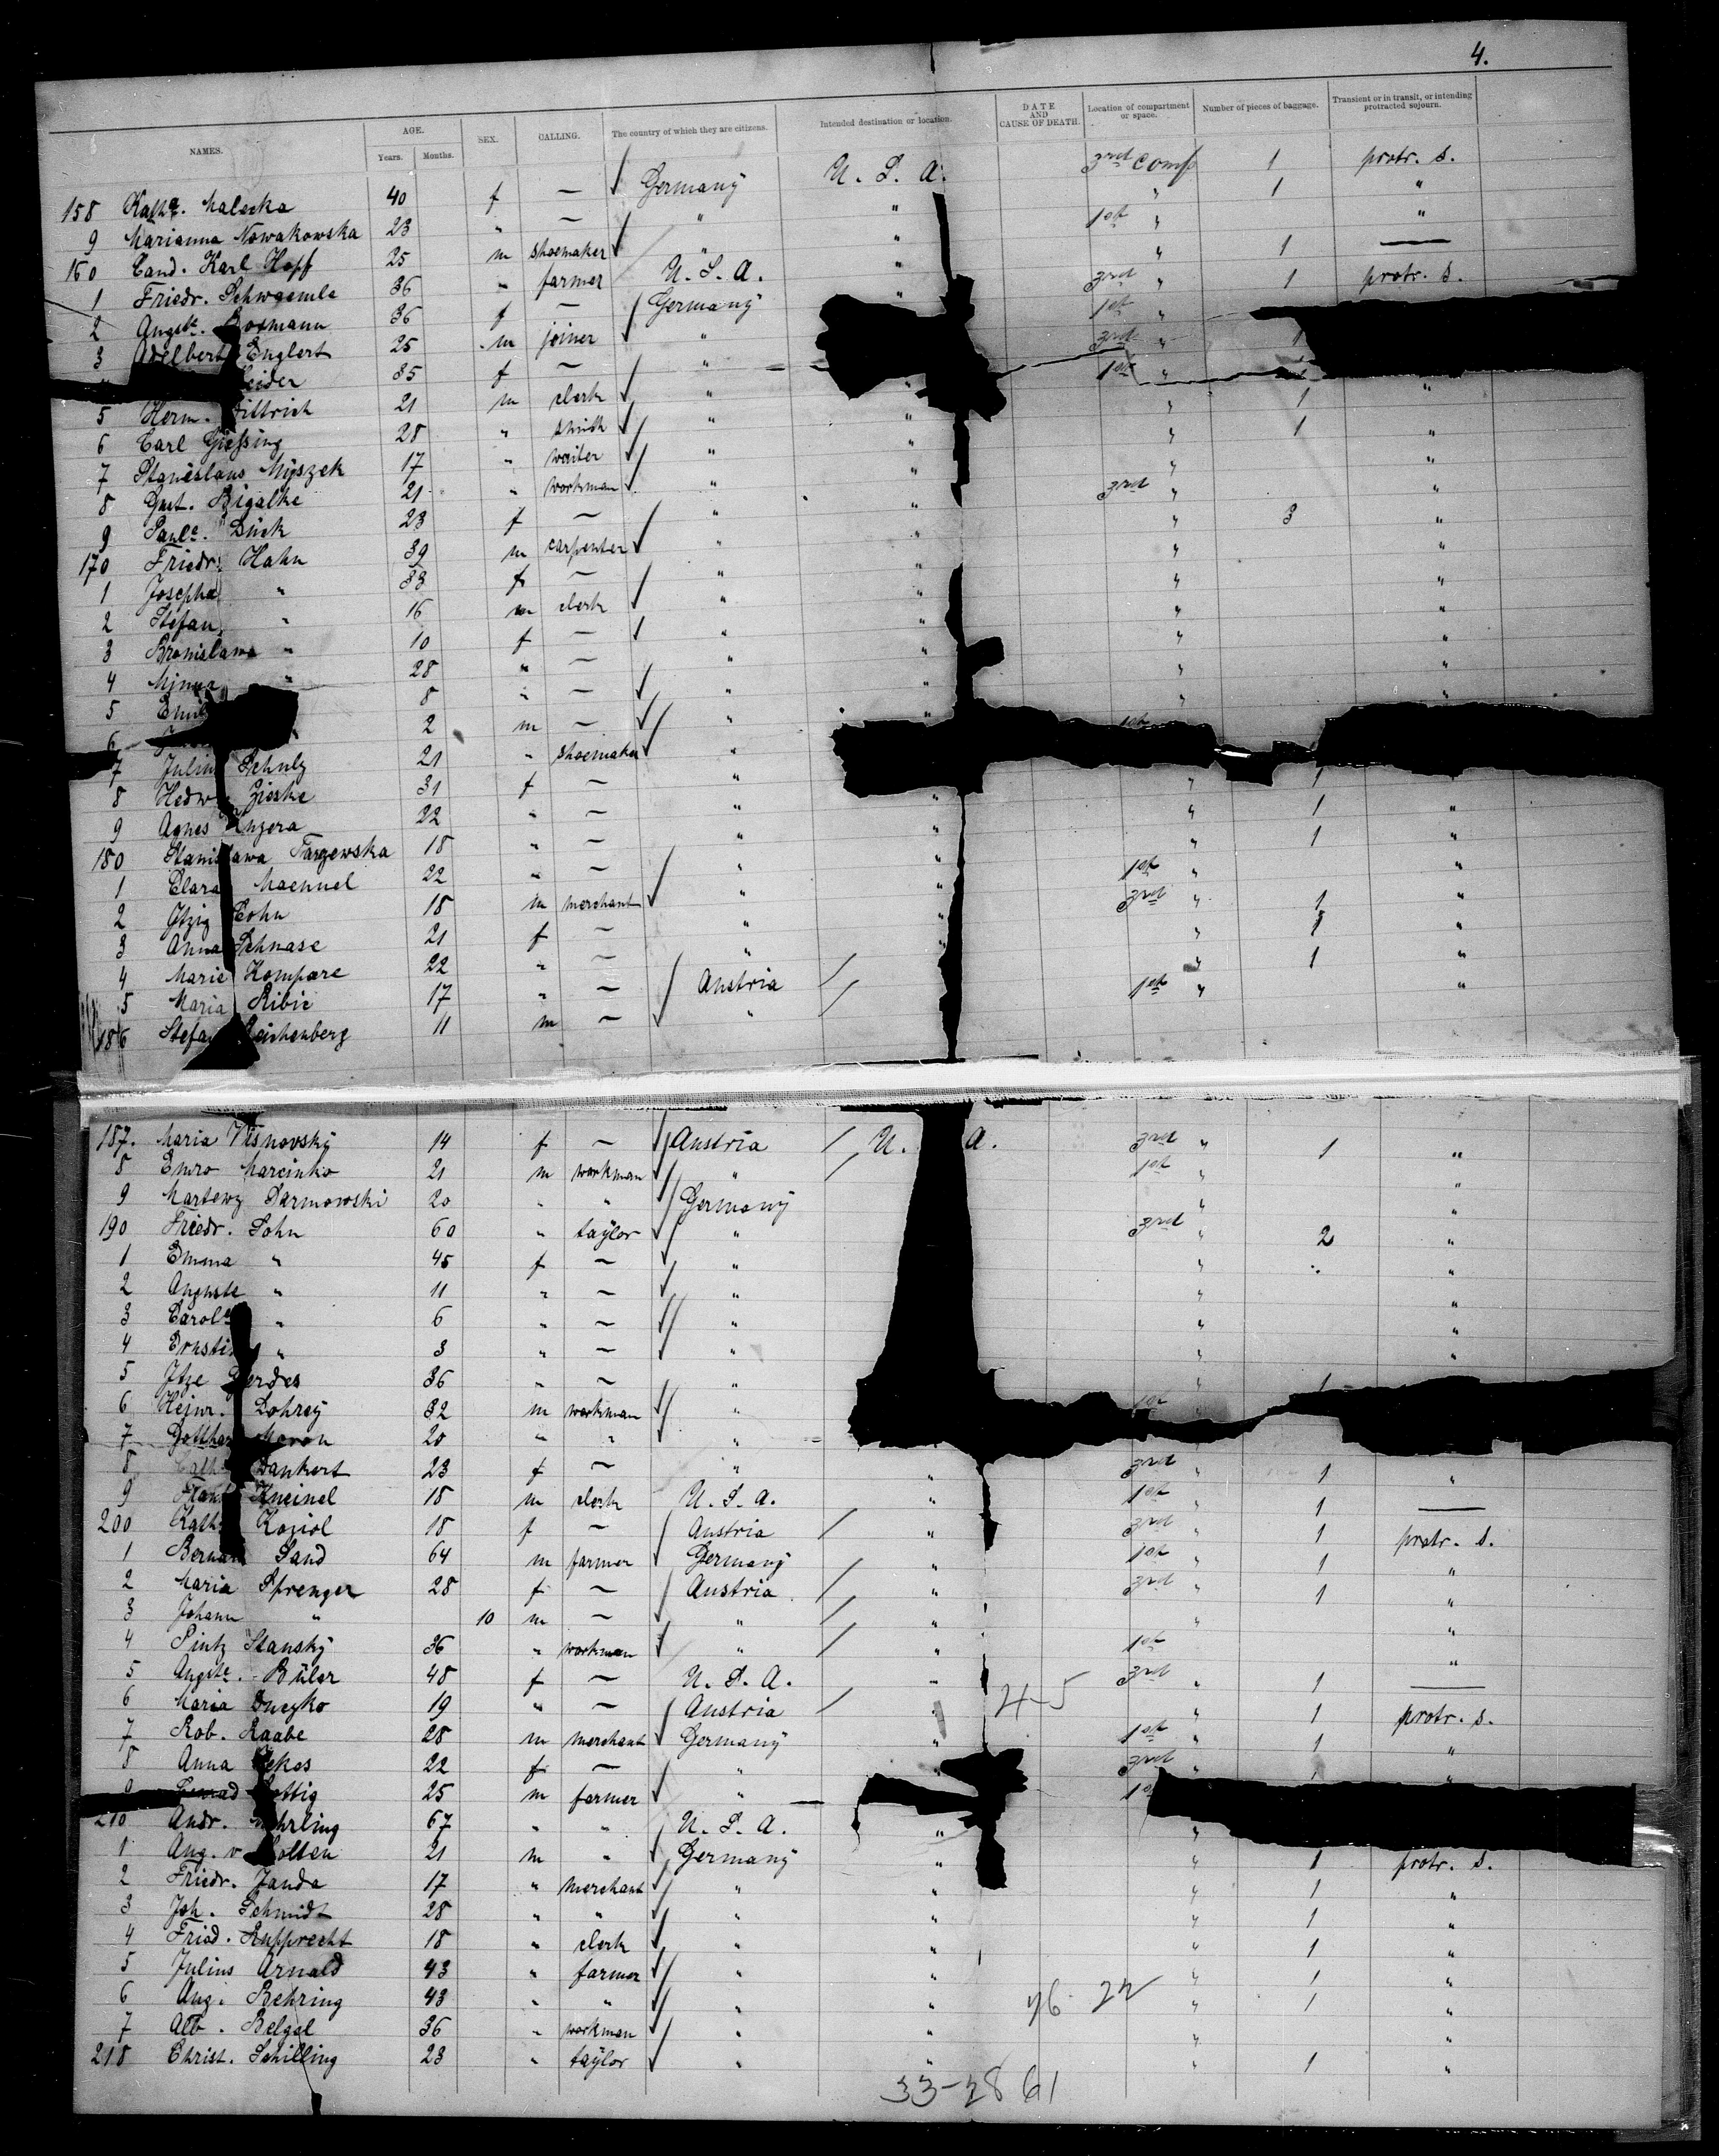 4.
NAMES. AGE. Years. Months. SEX. CALLING. The country of which they are citizens. Intended destination or location. DATE AND CAUSE OF DEATH. Location of compartment or space. Number of pieces of baggage. Transient or in transit, or intending protracted sojourn.
158 Kath. Malecka 40 f — Germany U. S. A. 3rd comp 1 protr. s.
9 Marianna Nowakowska 23 " — " " " 1 "
160 Cand. Karl Hopf 25 m shoemaker " " 1st " "
1 Friedr. Schwaemle 36 " farmer U. S. A. " " 1 —
2 Augste. 36 f — Germany " 3rd " 1 protr. s.
3 Adelbert Englert 25 m joiner " 1st "
35 f — " 3rd " 1
5 Herm. Dittrich 21 m clerk " " 1st "
6 Carl Giessing 28 " smith " " " 1 "
7 Stanislaus Myszek 17 " waiter " " " 1 "
8 Gust. Bigalke 21 " workman " " " "
9 Paule. Dück 23 f — " " 3rd " "
170 Friedr. Hahn 39 m carpenter " " " 3 "
1 Josepha " 33 f — " " " "
2 Stefan " 16 m clerk " " " "
3 Bronislawa " 10 f — " " " "
4 Minna " 28 " — " " " "
5 8 " — " " " "
6 2 m — " " " "
7 Julius Schulz 21 " shoemaker " 1st
8 Hedw. Zieske 31 f — "
9 Agnes 22 " — " " " 1
180 Stanislawa Targewska 18 " — " " " 1 "
1 Clara Maennel 22 " — " " " 1 "
2 Itzig Cohn 18 m merchant " " 1st " "
3 Anna Schnase 21 f — " " 3rd " 1 "
4 Marie Kompare 22 " — Austria " " 1 "
5 Maria Ribic 17 " — " " 1 "
186 Stefan Reichenberg 11 m — " 1st " "
187. Maria Visnovsky 14 f — Austria U. A. 3rd " 1 "
8 Emro Marcinko 21 m workman " 1st " "
9 Martewz Darmowski 20 " " Germany " "
190 Friedr. Sohn 60 " taylor " 3rd " 2 "
1 Emma " 45 f — " " " "
2 Auguste " 11 " — " " "
3 Carole " 6 " — " " "
4 Ernstine " 3 " — " " "
5 Itze Gerdes 36 " — " " 1
6 Heinr. Lohrey 32 m workman " 1st
7 Gotthard Maron 20 " " "
8 Dankert 23 f — " " 3rd " 1 "
9 Frank Kneinel 18 m clerk U. S. A. " 1st " 1 —
200 Kath. Koziol 18 f — Austria " 3rd " 1 protr. s.
1 Bernard Sand 64 m farmer Germany " 1st " 1 "
2 Maria Sprenger 28 f — Austria " 3rd " 1 "
3 Johann " 10 m — " " " "
4 Pintz Stansky 36 " workman " " 1st "
5 Augste. Büler 48 f — U. S. A. " 3rd " 1 —
6 Maria 19 " — Austria " " 1 protr. s.
7 Rob. Raabe 28 m merchant Germany " 1st " 1 "
8 Anna 22 f — " 3rd " "
25 m farmer "
210 Andr. 67 " " U. S. A. " "
1 Aug. v 21 m " Germany " " 1 protr. s.
2 Friedr. Janda 17 " merchant " " " 1 "
3 Joh. Schmidt 28 " " " " " 1 "
4 Fried. Rupprecht 18 " clerk " " " 1 "
5 Julius Arnold 43 " farmer " " " 1 "
6 Aug. Behring 43 " " " " " 1 "
7 Alb. Belgel 36 " workman " " " "
218 Christ. Schilling 23 " taylor " " " 1 "
33-28 61